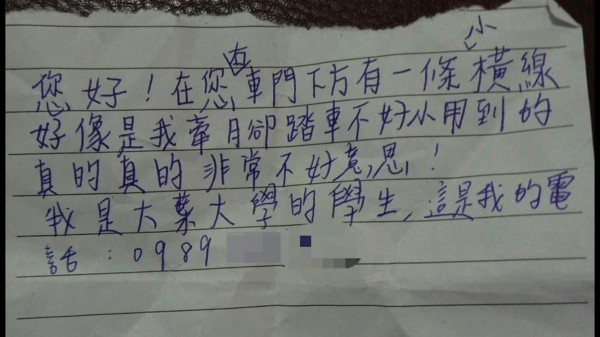 您好！在您右車門下方有一條小橫線
好像是我牽月卻踏車不好小用到的
真的真的非常不好意思！
我是大葉大學的學生,這是我的電
話：0989